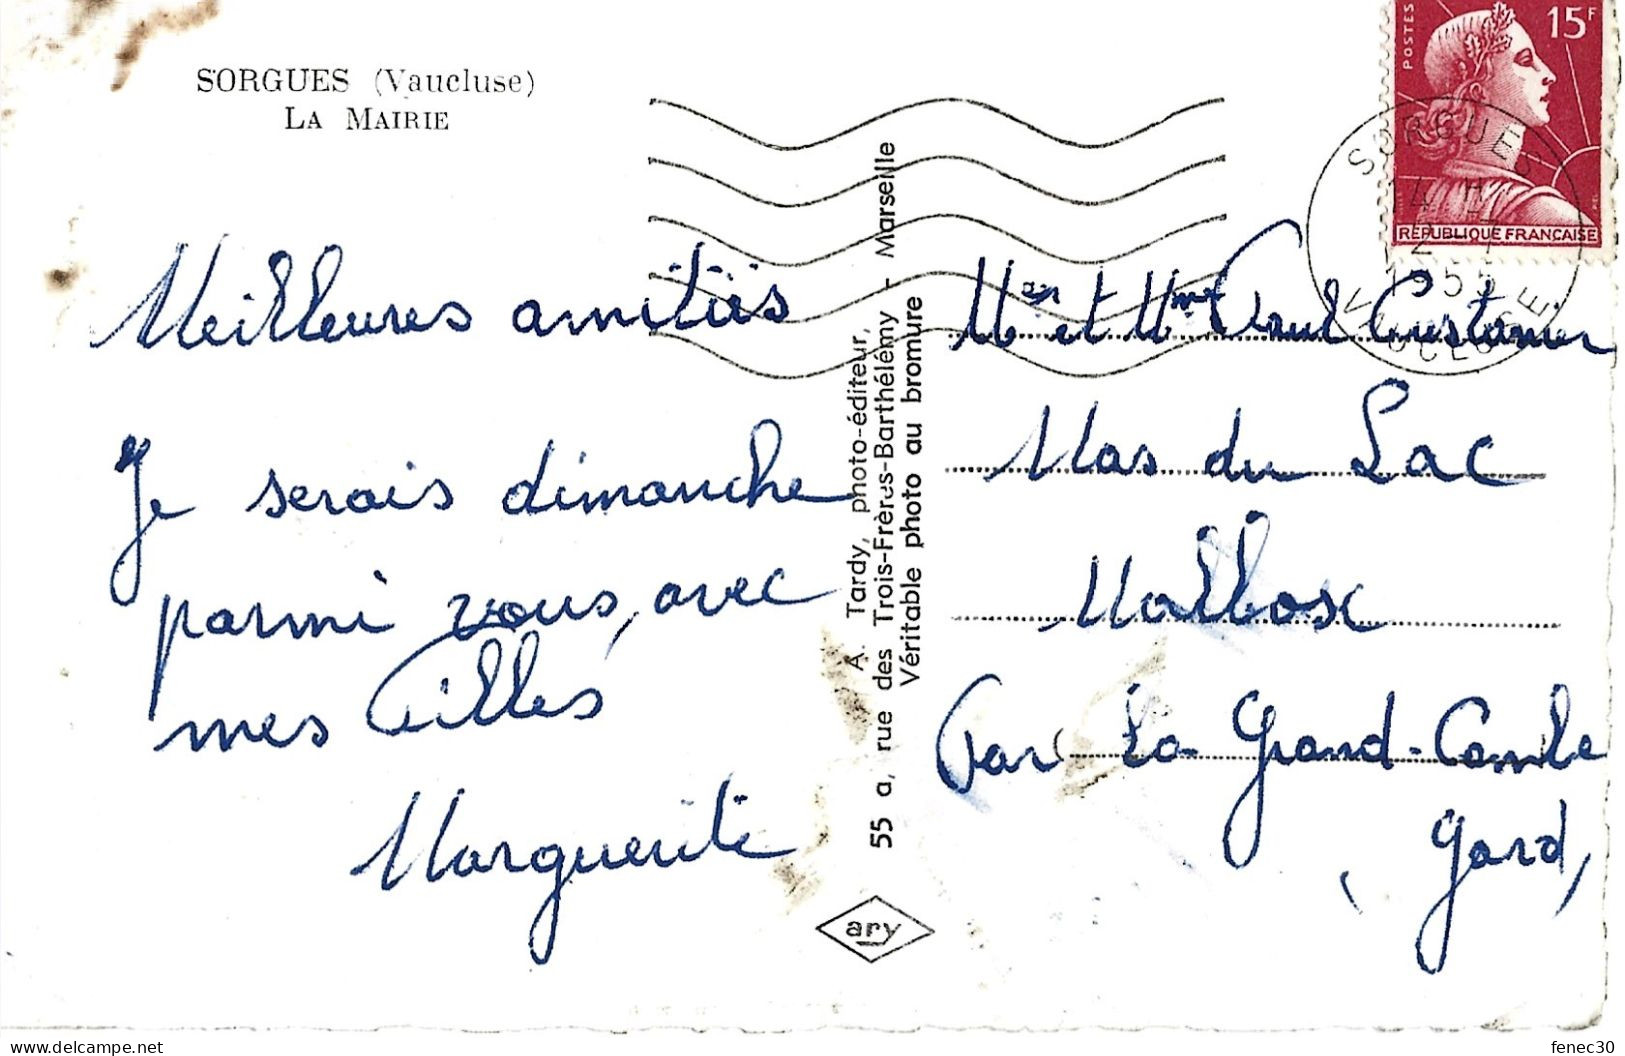 SORGUES (Vaucluse)
LA MAIRIE
Meilleures amitiés
Je serais dimanche
parmi vous, avec
mes filles
Marguerite
A. Tardy, photo-éditeur,
55 a, rue des Trois-Frères-Barthélémy - Marseille
Véritable photo au bromure
ary
POSTES
15F
REPUBLIQUE FRANÇAISE
SORGUES
14 H
1955
VAUCLUSE
et Mme Paul Coustanier
Mas du Lac
Malbosc
Par la Grand-Combe
(Gard)
delcampe.net
fenec30